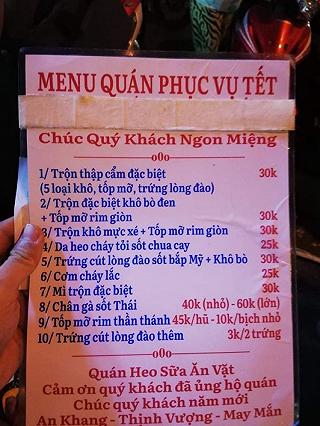 MENU QUÁN PHỤC VỤ TẾT
Chúc Quý Khách Ngon Miệng
oOo
1/ Trộn thập cẩm đặc biệt 30k
(5 loại khô, tốp mỡ, trứng lòng đào)
2/ Trộn đặc biệt khô bò đen
+ Tốp mỡ rim giòn 30k
3/ Trộn khô mực xé + Tốp mỡ rim giòn 30k
4/ Da heo cháy tỏi sốt chua cay 25k
5/ Trứng cút lòng đào sốt bắp Mỹ + Khô bò 30k
6/ Cơm cháy lắc 25k
7/ Mì trộn đặc biệt 30k
8/ Chân gà sốt Thái 40k (nhỏ) - 60k (lớn)
9/ Tốp mỡ rim thần thánh 45k/hũ - 10k/bịch nhỏ
10/ Trứng cút lòng đào thêm 3k/2 trứng
oOo
Quán Heo Sữa Ăn Vặt
Cảm ơn quý khách đã ủng hộ quán
Chúc quý khách năm mới
An Khang - Thịnh Vượng - May Mắn